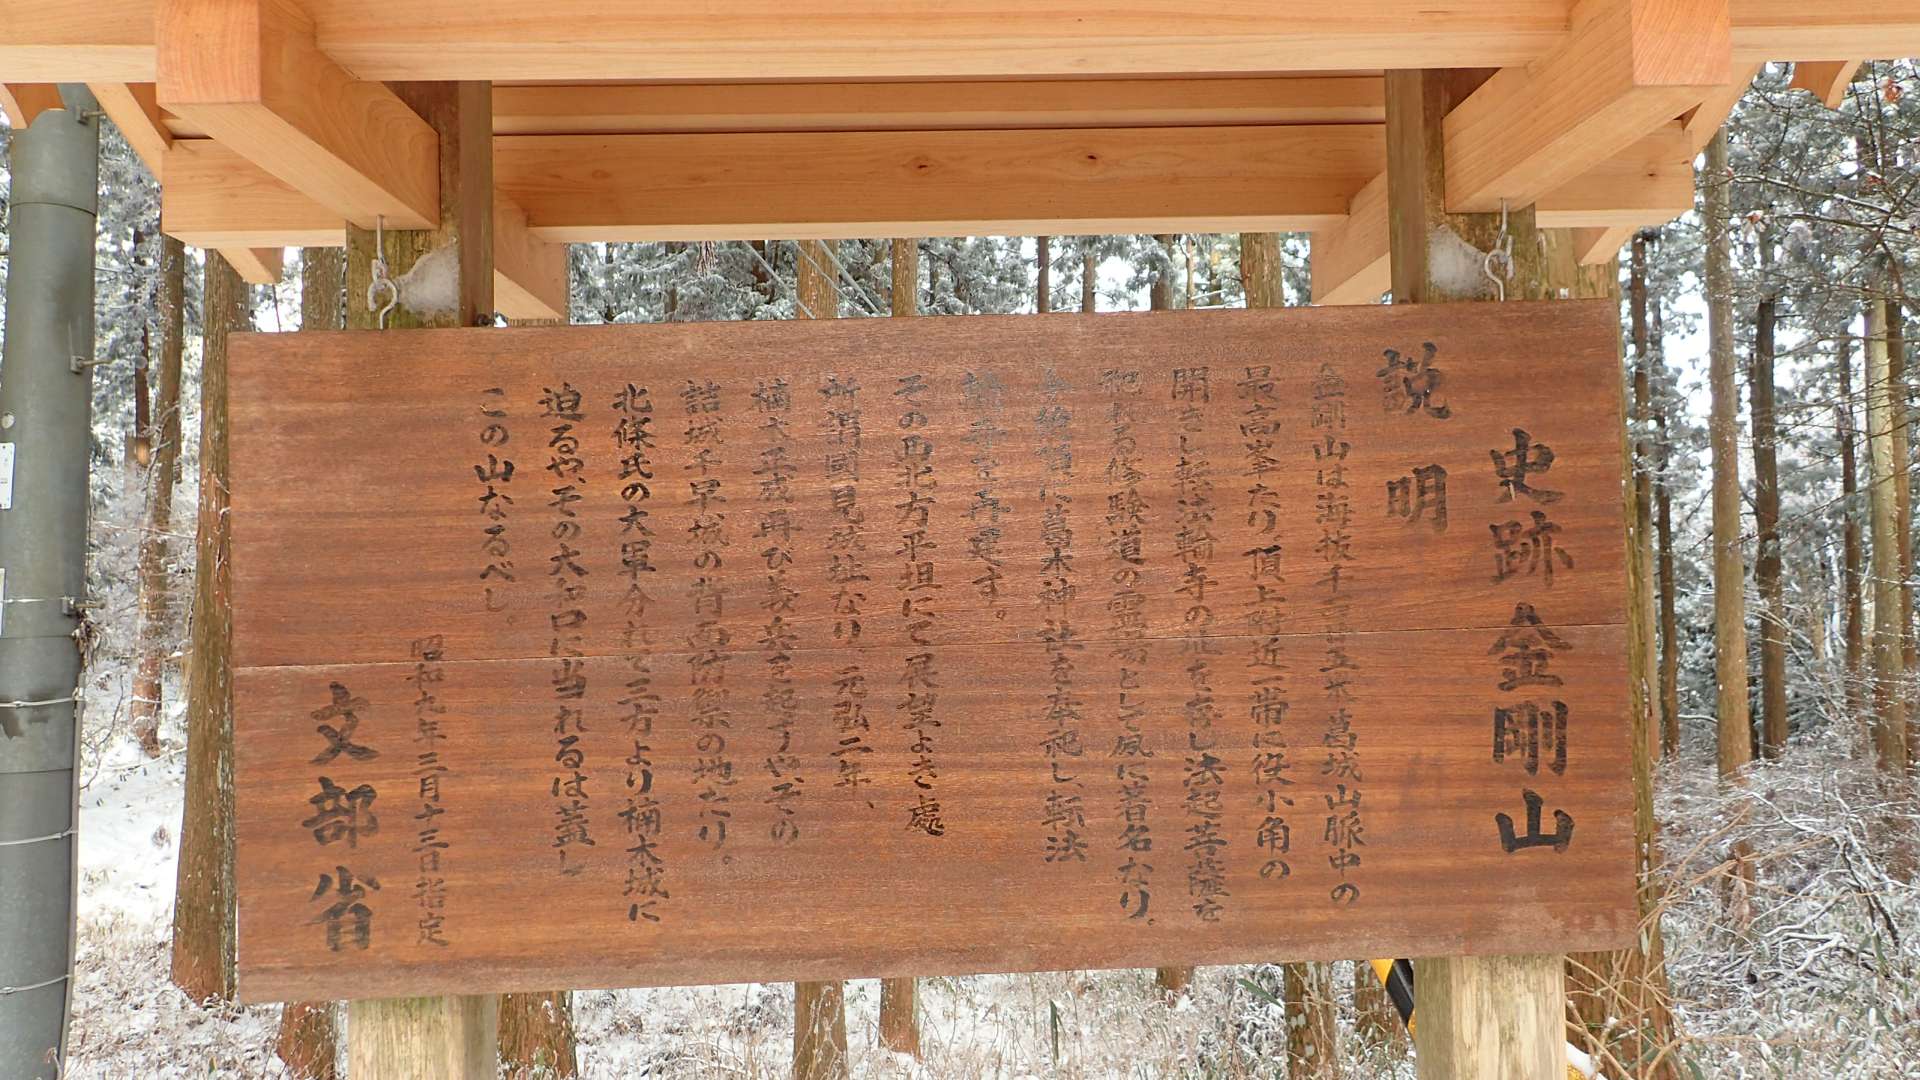 史跡金剛山
説明
金剛山は海抜千百 五米葛城山脈中の
最高峯たり。頂上附近一帯に役小角の
開きし転法輪寺の址を存し法起菩薩を
祀れる修験道の霊場として夙に著名なり。
に葛木神社を奉祀し、転法
輪寺を再建す。
その西北方平坦にて展望よき處
所謂國見城址なり 元弘二年、
楠木正成再び義兵を起すや、その
詰城千早城の背面防禦の地たり。
北條氏の大軍分れて三方より楠木城に
迫るや、その大和口に当れるは蓋し
この山なるべし。
昭和九年三月十三日指定
文部省